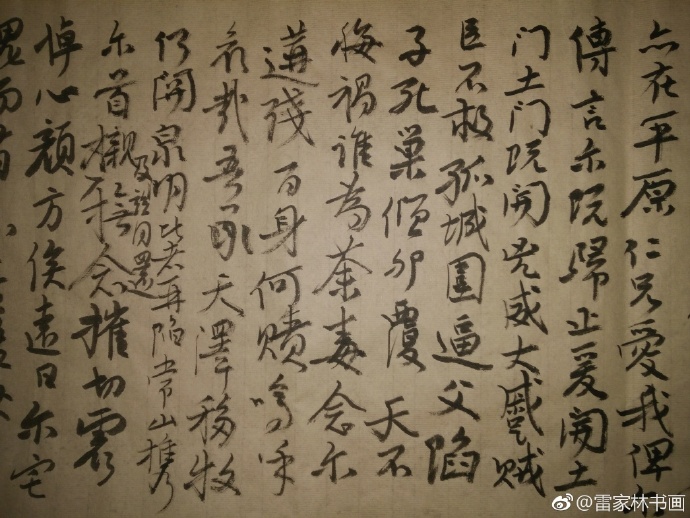 亦在平原仁兄愛我俾
傳言尔既歸止爰開土
门土门既開兇威大蹙賊
臣不救孤城圍逼父陷
子死巢傾卵覆天不
悔禍谁為荼毒念尔
遘殘百身何贖嗚乎
哀哉吾承天澤移牧
仍開泉明比者再陷常山携
尔首櫬及兹同還
念摧切震
悼心顏方俟遠日尔宅
@雷家林书画